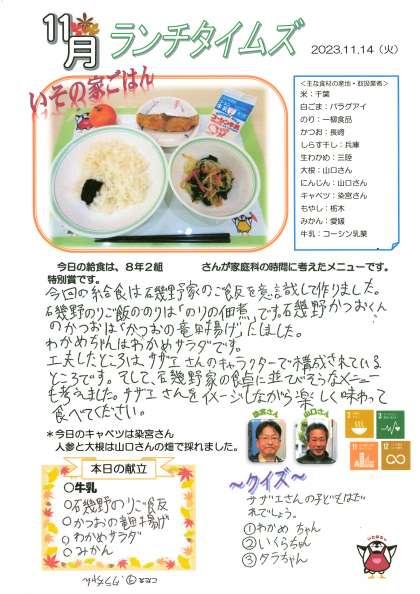 11月 ランチタイムズ
2023.11.14（火）
いその家ごはん
＜主な食材の産地・取扱業者＞
米：千葉
白ごま：パラグアイ
のり：一柳食品
かつお：長崎
しらす干し：兵庫
生わかめ：三陸
大根：山口さん
にんじん：山口さん
キャベツ：染宮さん
もやし：栃木
みかん：愛媛
牛乳：コーシン乳業
今日の給食は、８年２組　　　さんが家庭科の時間に考えたメニューです。
特別賞です。
今回の給食は磯野家のご飯を意識して作りました。
磯野のりご飯ののりは「のりの佃煮」です。磯野かつおくん
のかつおは「かつおの竜田揚げ」にしました。
わかめちゃんはわかめサラダです。
工夫したところは、サザエさんのキャラクターで構成されている
ところです。そして、磯野家の食卓に並びそうなメニュー
も考えました。サザエさんをイメージしながら楽しく味わって
食べてください。
＊今日のキャベツは染宮さん
人参と大根は山口さんの畑で採れました。
染宮さん
山口さん
本日の献立
○牛乳
○磯野のりご飯
○かつおの竜田揚げ
○わかめサラダ
○みかん
～クイズ～
サザエさんの子どもはだ
れでしょう。
①わかめちゃん
②いくらちゃん
③タラちゃん
こたえ ③ タラちゃん